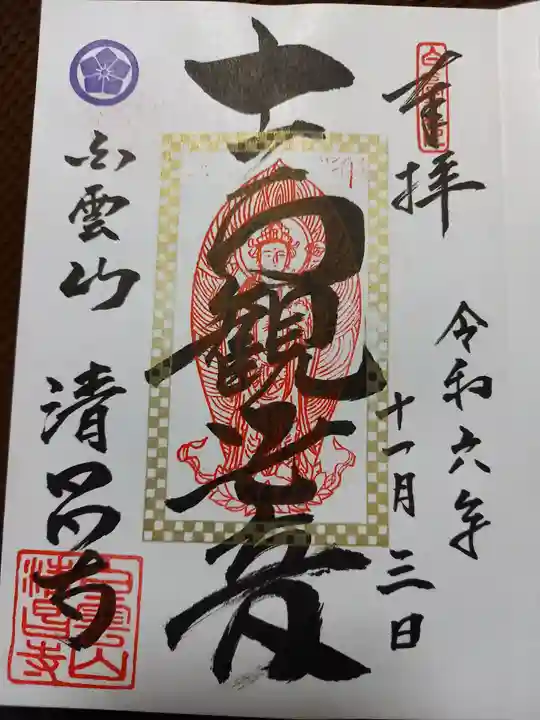 奉拝
令和六年
十一月三日
十一面観世音
白雲山 清昌寺
白雲山
清昌寺